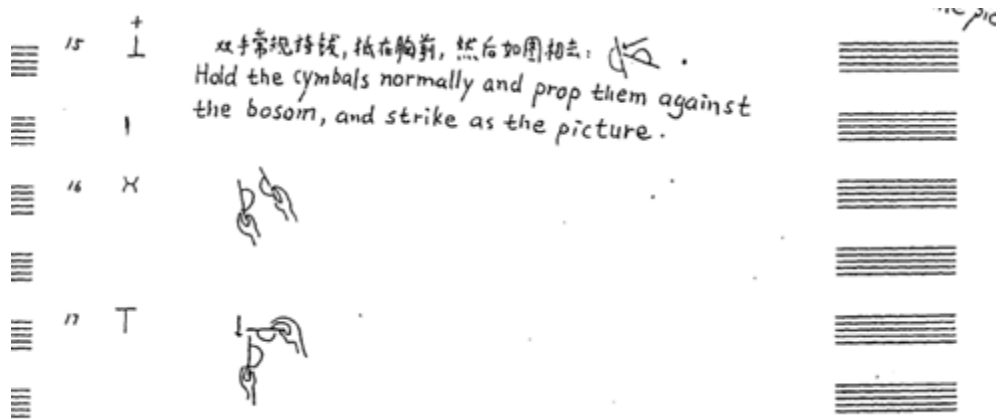 15 双手常规持钹，抵在胸前，然后如图相击：
Hold the cymbals normally and prop them against
the bosom, and strike as the picture.
16
17 T